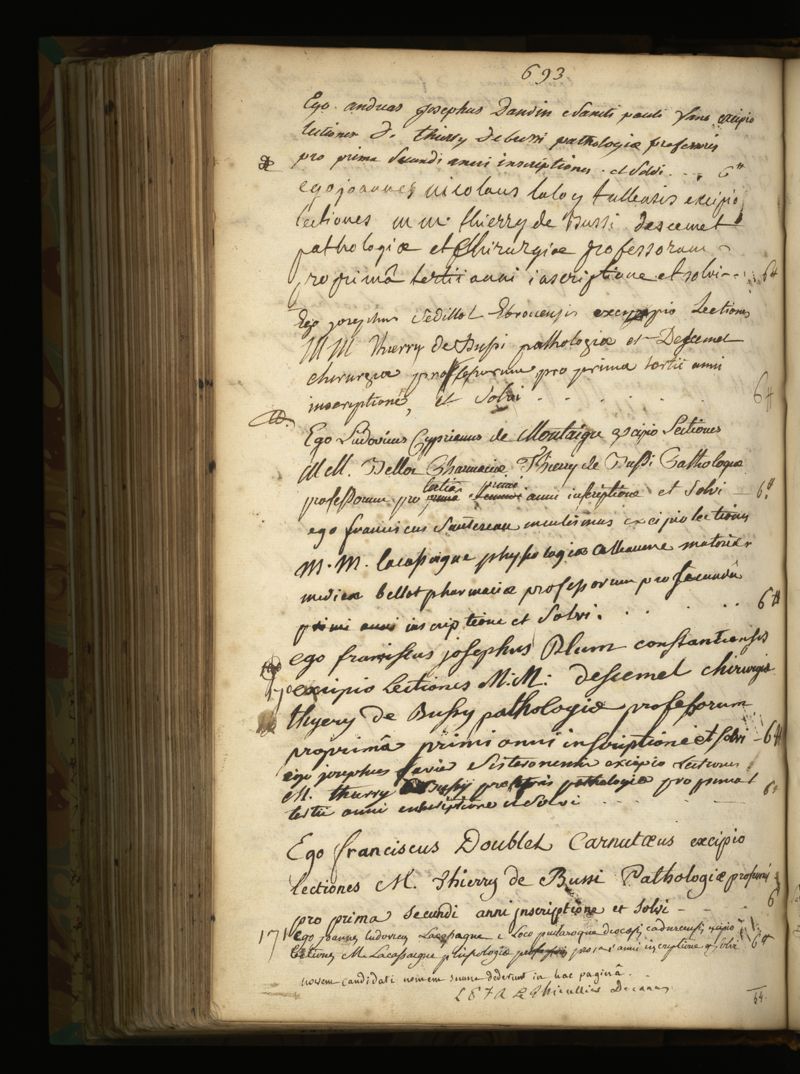 693
Ego andreas josephus Dandin e Sancti pauli excipio
lectiones D. thierry de bussi pathologiæ professoris
pro prima secundi anni inscriptione et solvi . . . 6 ₶
ego joannes nicolaus laloy tullensis excipio
lectiones m m thierry de Bussi descemet
pathologiæ et chirurgiæ professorum
pro primâ tertii anni inscriptione et solvi - - 6 ₶
Ego josephus Sedillot Ebroicensis excipio Lectiones
MM Thierry de Bussi pathologiæ et Descemet
chirurgiæ professorum pro prima tertii anni
inscriptione, et Solvi . . . . . 6 ₶
Ego Ludovicus Cyprianus de Montaigu excipio Lectiones
MM. Bellot Pharmaciæ Thierry de Bussi Pathologiæ
tertia primi
professorum pro prima anni inscriptione et solvi - 6 ₶
ego franciscus Sautereau excipio lectiones
M. M. lacassaigne physiologiæ alleaume materiæ
medicæ bellot pharmaciæ professorum pro secundâ
primi anni inscriptione et Solvi . . . . 6 ₶
ego franciscus josephus Blum constantiensis
excipio Lectiones M. M: descemet chirurgiæ
thyery de Bussy pathologiæ professorum
pro primâ primi anni inscriptione et solvi - 6 ₶
ego josephus excipio Lectiones
M. thierry de Bussy professoris pathologiæ pro prima
tertii anni inscriptione et Solvi . . . 6 ₶
Ego franciscus Doublet Carnutæus excipio
lectiones M. Thierry de Bussi Pathologiæ professoris
pro prima secundi anni inscriptione et solvi - 6
Ego joannes ludovicus Lacassagne e Loco diocesis cadurcensis excipio
lectiones M. Lacassaigne physiologiæ anni inscriptione et solvi 6 ₶
novem candidati nomen suum dederunt in hac paginâ.
Le Thieullier Decanus
54.